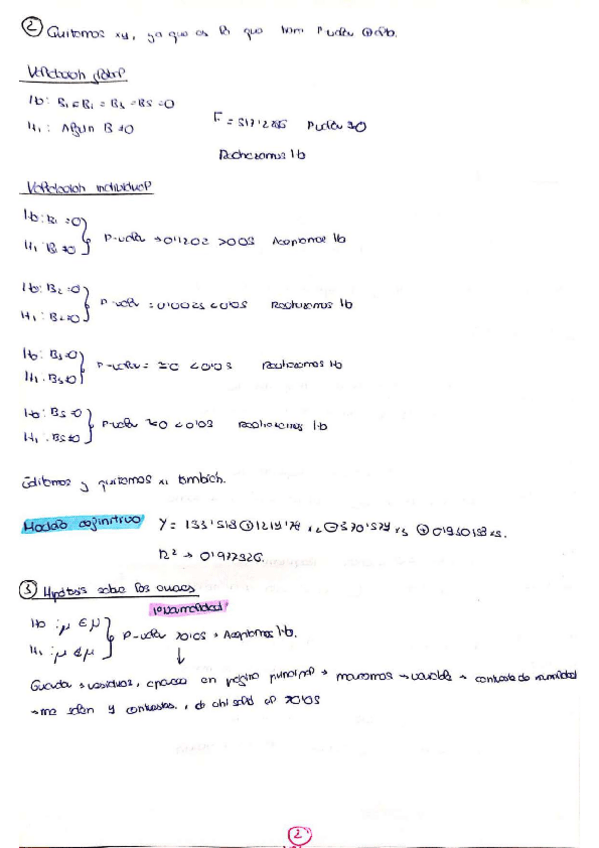 ② Quitamos x4, ya que es la que tiene p valor más alto.
Validación global
H0: B1 = B2 = B3 = B5 = 0
H1: Algun B ≠ 0
F = 517'2765 p valor ≈ 0
Rechazamos H0
Validación individual
H0: B1 = 0
H1: B1 ≠ 0
p-valor → 0'1202 > 0'05 Aceptamos H0
H0: B2 = 0
H1: B2 ≠ 0
p-valor = 0'0025 < 0'05 Rechazamos H0
H0: B3 = 0
H1: B3 ≠ 0
p-valor = ≈0 < 0'05 Rechazamos H0
H0: B5 = 0
H1: B5 ≠ 0
p-valor ≈ 0 < 0'05 Rechazamos H0
Editamos y quitamos x1 también.
Modelo definitivo Y = 133'518 ⊕ 1219'74 x2 ⊖ 370'579 x3 ⊕ 0'950158 x5.
R² → 0'977326.
③ Hipótesis sobre los errores
normalidad
H0: μ ∈ N
H1: μ ∉ N
p-valor > 0'05 → Aceptamos H0.
↓
Guardar → residuos, aparece en página principal → marcamos → variable → contraste de normalidad
→ me salen 4 contrastes,
②